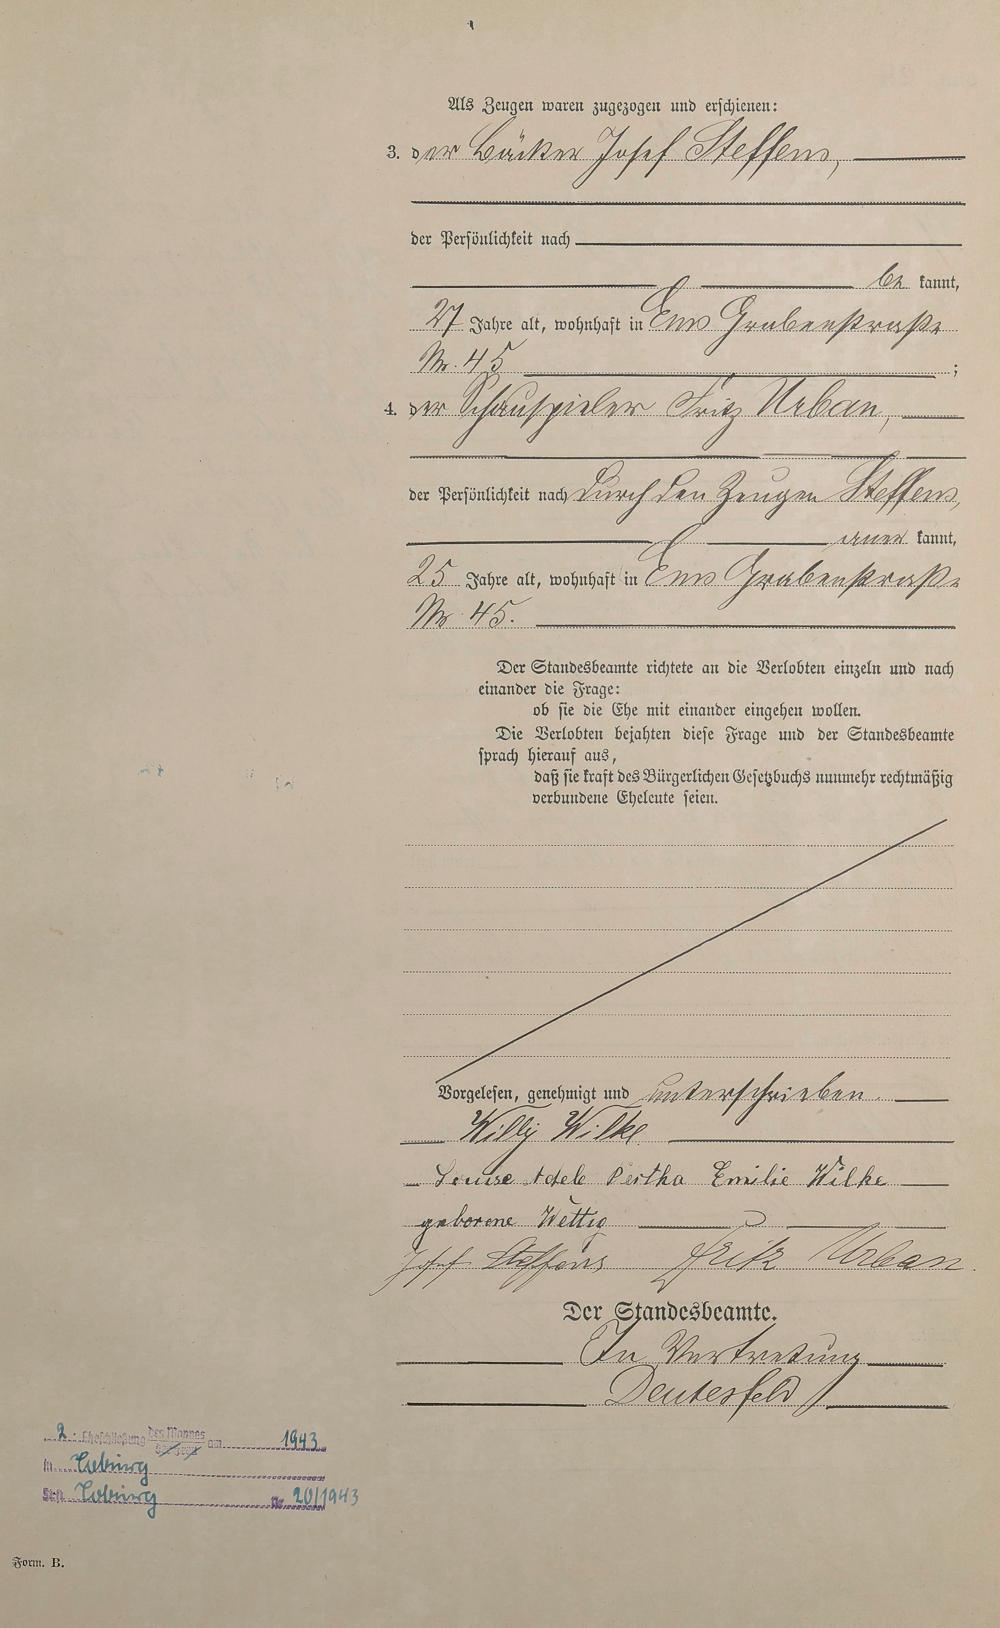 Als Zeugen waren zugezogen und erschienen:
3. der Bäcker Josef Steffens,
der Persönlichkeit nach
be kannt,
27 Jahre alt, wohnhaft in Ems Grabenstraße
Nr. 45 ;
4. der Schauspieler Fritz Urban,
der Persönlichkeit nach durch den Zeugen Steffens,
aner kannt,
25 Jahre alt, wohnhaft in Ems Grabenstraße
Nr. 45.
Der Standesbeamte richtete an die Verlobten einzeln und nach
einander die Frage:
ob sie die Ehe mit einander eingehen wollen.
Die Verlobten bejahten diese Frage und der Standesbeamte
sprach hierauf aus,
daß sie kraft des Bürgerlichen Gesetzbuchs nunmehr rechtmäßig
verbundene Eheleute seien.
Vorgelesen, genehmigt und unterschrieben.
Willy Wilke
Louise Adele Bertha Emilie Wilke
geborene Wettig
Josef Steffens Fritz Urban
Der Standesbeamte.
In Vertretung
Deutesfeld
2. Eheschließung des Mannes am 1943
in Coburg
St.A. Coburg Nr. 20/1943
Form. B.